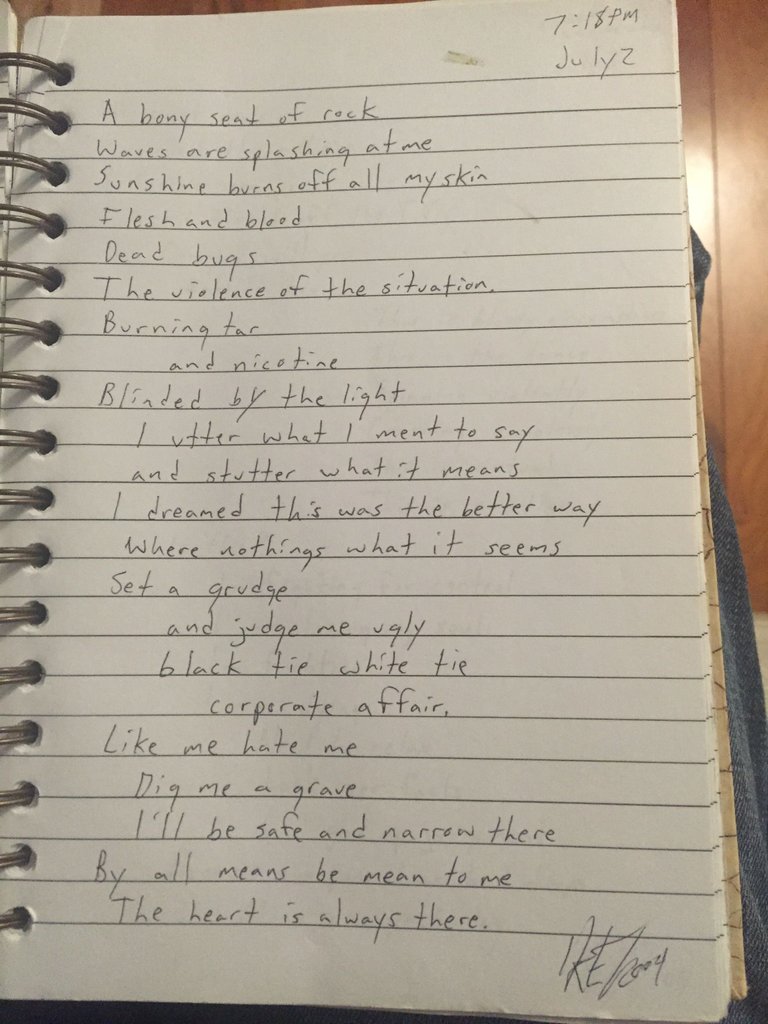 7:18PM
July 2
A bony seat of rock
Waves are splashing at me
Sunshine burns off all my skin
Flesh and blood
Dead bugs
The violence of the situation.
Burning tar
and nicotine
Blinded by the light
I utter what I ment to say
and stutter what it means
I dreamed this was the better way
Where nothings what it seems
Set a grudge
and judge me ugly
black tie white tie
corporate affair.
Like me hate me
Dig me a grave
I'll be safe and narrow there
By all means be mean to me
The heart is always there.
2004